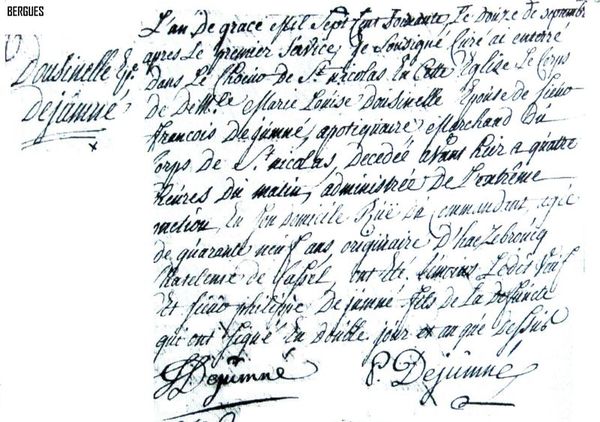 BERGUES
Dousinelle Ep.e
Dejumné
L'an de grace Mil Sept Cent Soixante, Le douze de septembre
apres Le premier Service, Je Soussigné Curé ai enterré
dans Le Choeur de St nicolas En Cette Eglise Le Corps
de deMlle Marie Louise dousinelle Epouse de sieur
francois Dejumné, apotiquaire Marchand du
Corps de St nicolas, decedée avant hier a quatre
heures du matin, administrée de L'extrême
onction, En Son domicile Rüe du commandant, agée
de quarante neuf ans originaire D'hazebroucq
Chatelenie de Cassel, ont été temoins Ledit veuf
Et sieur philippe Dejumné fils de La defuncte
qui ont Signé En double jour et an que dessus
Dejumné
P. Dejumné